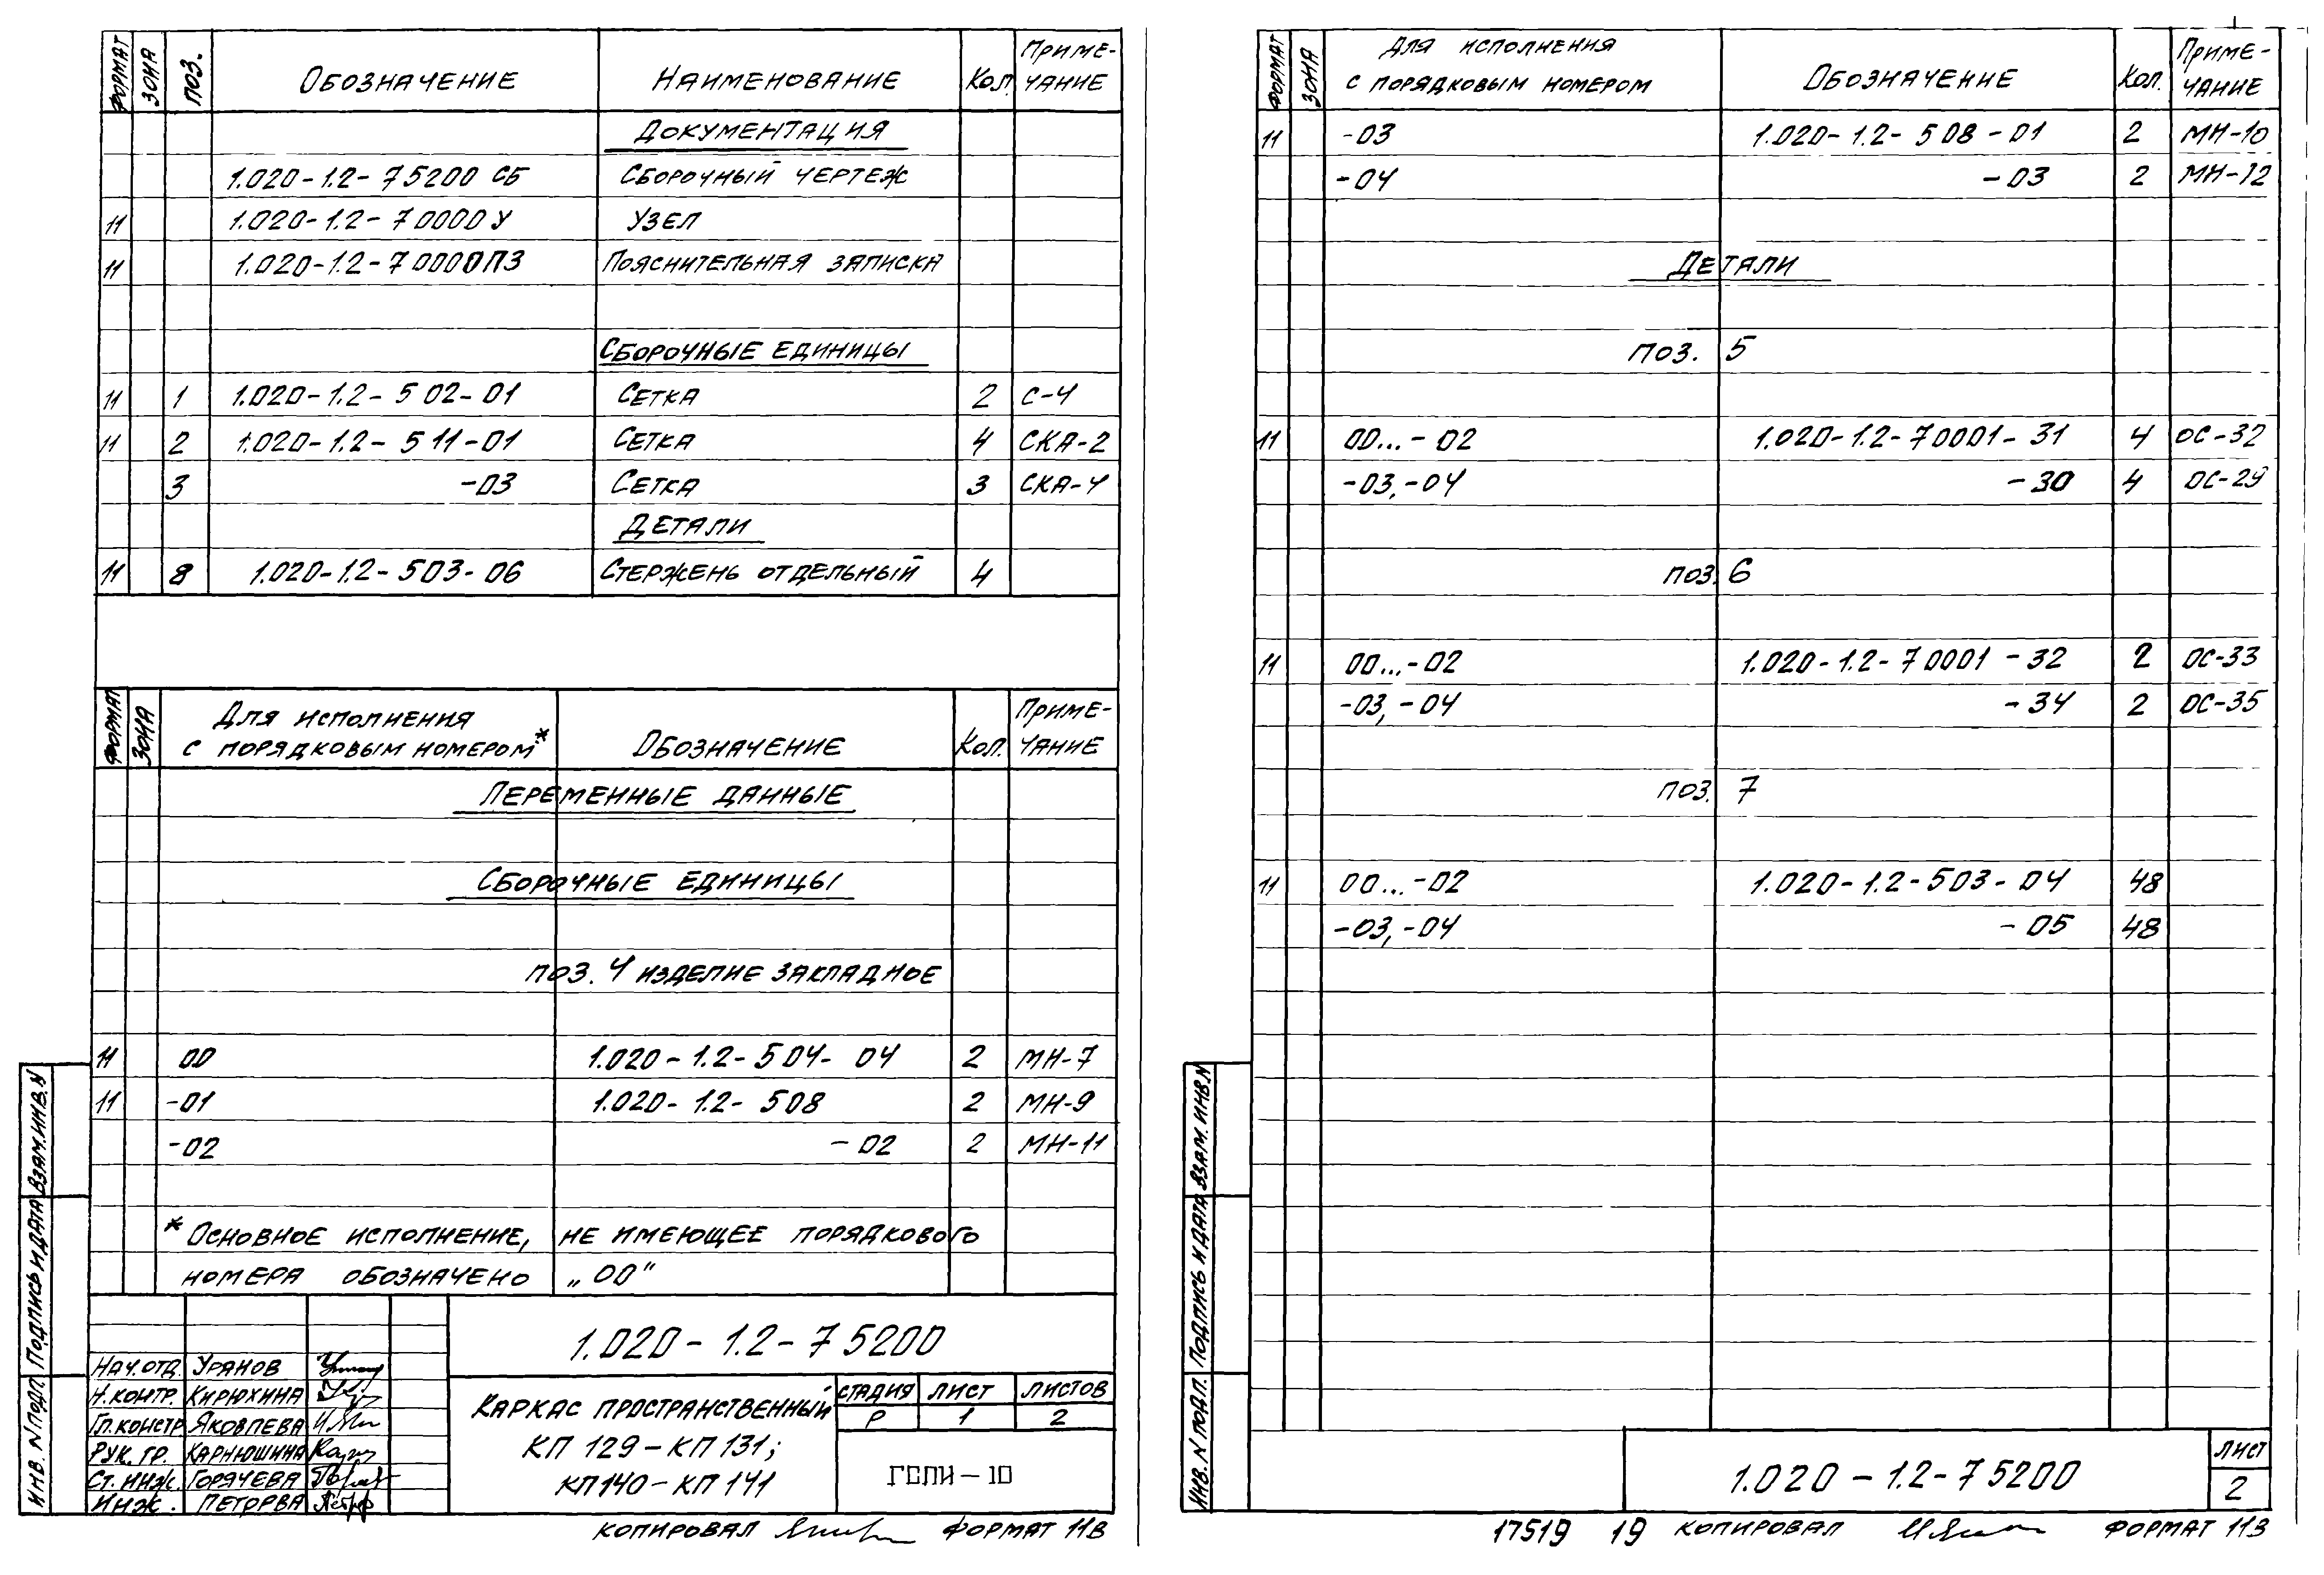 ФОРМАТ ЗОНА ПОЗ. ОБОЗНАЧЕНИЕ НАИМЕНОВАНИЕ КОЛ. ПРИМЕ-
ЧАНИЕ
ДОКУМЕНТАЦИЯ
1.020-1.2-75200 СБ СБОРОЧНЫЙ ЧЕРТЕЖ
11 1.020-1.2-70000У УЗЕЛ
11 1.020-1.2-70000ПЗ ПОЯСНИТЕЛЬНАЯ ЗАПИСКА
СБОРОЧНЫЕ ЕДИНИЦЫ
11 1 1.020-1.2-502-01 СЕТКА 2 С-4
11 2 1.020-1.2-511-01 СЕТКА 4 СКА-2
3 -03 СЕТКА 3 СКА-4
ДЕТАЛИ
11 8 1.020-1.2-503-06 СТЕРЖЕНЬ ОТДЕЛЬНЫЙ 4
ФОРМАТ ЗОНА ДЛЯ ИСПОЛНЕНИЯ
С ПОРЯДКОВЫМ НОМЕРОМ* ОБОЗНАЧЕНИЕ КОЛ. ПРИМЕ-
ЧАНИЕ
ПЕРЕМЕННЫЕ ДАННЫЕ
СБОРОЧНЫЕ ЕДИНИЦЫ
ПОЗ. 4 ИЗДЕЛИЕ ЗАКЛАДНОЕ
11 00 1.020-1.2-504-04 2 МН-7
11 -01 1.020-1.2-508 2 МН-9
-02 -02 2 МН-11
* ОСНОВНОЕ ИСПОЛНЕНИЕ, НЕ ИМЕЮЩЕЕ ПОРЯДКОВОГО
НОМЕРА ОБОЗНАЧЕНО „00"
ИНВ. N ПОДЛ. ПОДПИСЬ И ДАТА ВЗАМ. ИНВ. N
1.020-1.2-75200
НАЧ.ОТД. УРАНОВ
Н.КОНТР. КИРЮХИНА
ГЛ.КОНСТР ЯКОВЛЕВА
РУК. ГР. КАРНЮШИНА
СТ. ИНЖ. ГОРЯЧЕВА
ИНЖ. ПЕТРОВА
КАРКАС ПРОСТРАНСТВЕННЫЙ
КП 129-КП 131;
КП140-КП 141
СТАДИЯ ЛИСТ ЛИСТОВ
Р 1 2
ГСПИ-10
КОПИРОВАЛ ФОРМАТ 11В
ФОРМАТ ЗОНА ДЛЯ ИСПОЛНЕНИЯ
С ПОРЯДКОВЫМ НОМЕРОМ ОБОЗНАЧЕНИЕ КОЛ. ПРИМЕ-
ЧАНИЕ
11 -03 1.020-1.2-508-01 2 МН-10
-04 -03 2 МН-12
ДЕТАЛИ
ПОЗ. 5
11 00...-02 1.020-1.2-70001-31 4 ОС-32
-03,-04 -30 4 ОС-29
ПОЗ. 6
11 00...-02 1.020-1.2-70001-32 2 ОС-33
-03,-04 -34 2 ОС-35
ПОЗ. 7
11 00...-02 1.020-1.2-503-04 48
-03,-04 -05 48
ИНВ. N ПОДЛ. ПОДПИСЬ И ДАТА ВЗАМ. ИНВ.N
1.020-1.2-75200
ЛИСТ
2
17519 19 КОПИРОВАЛ ФОРМАТ 11В